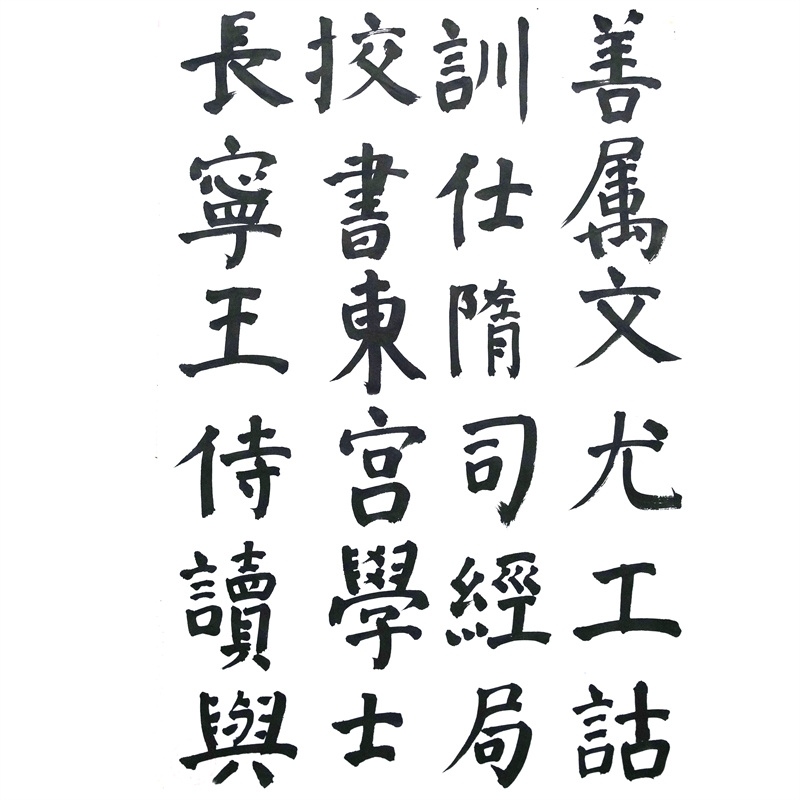 善属文尤工詁
訓仕隋司經局
挍書東宮學士
長寧王侍讀與